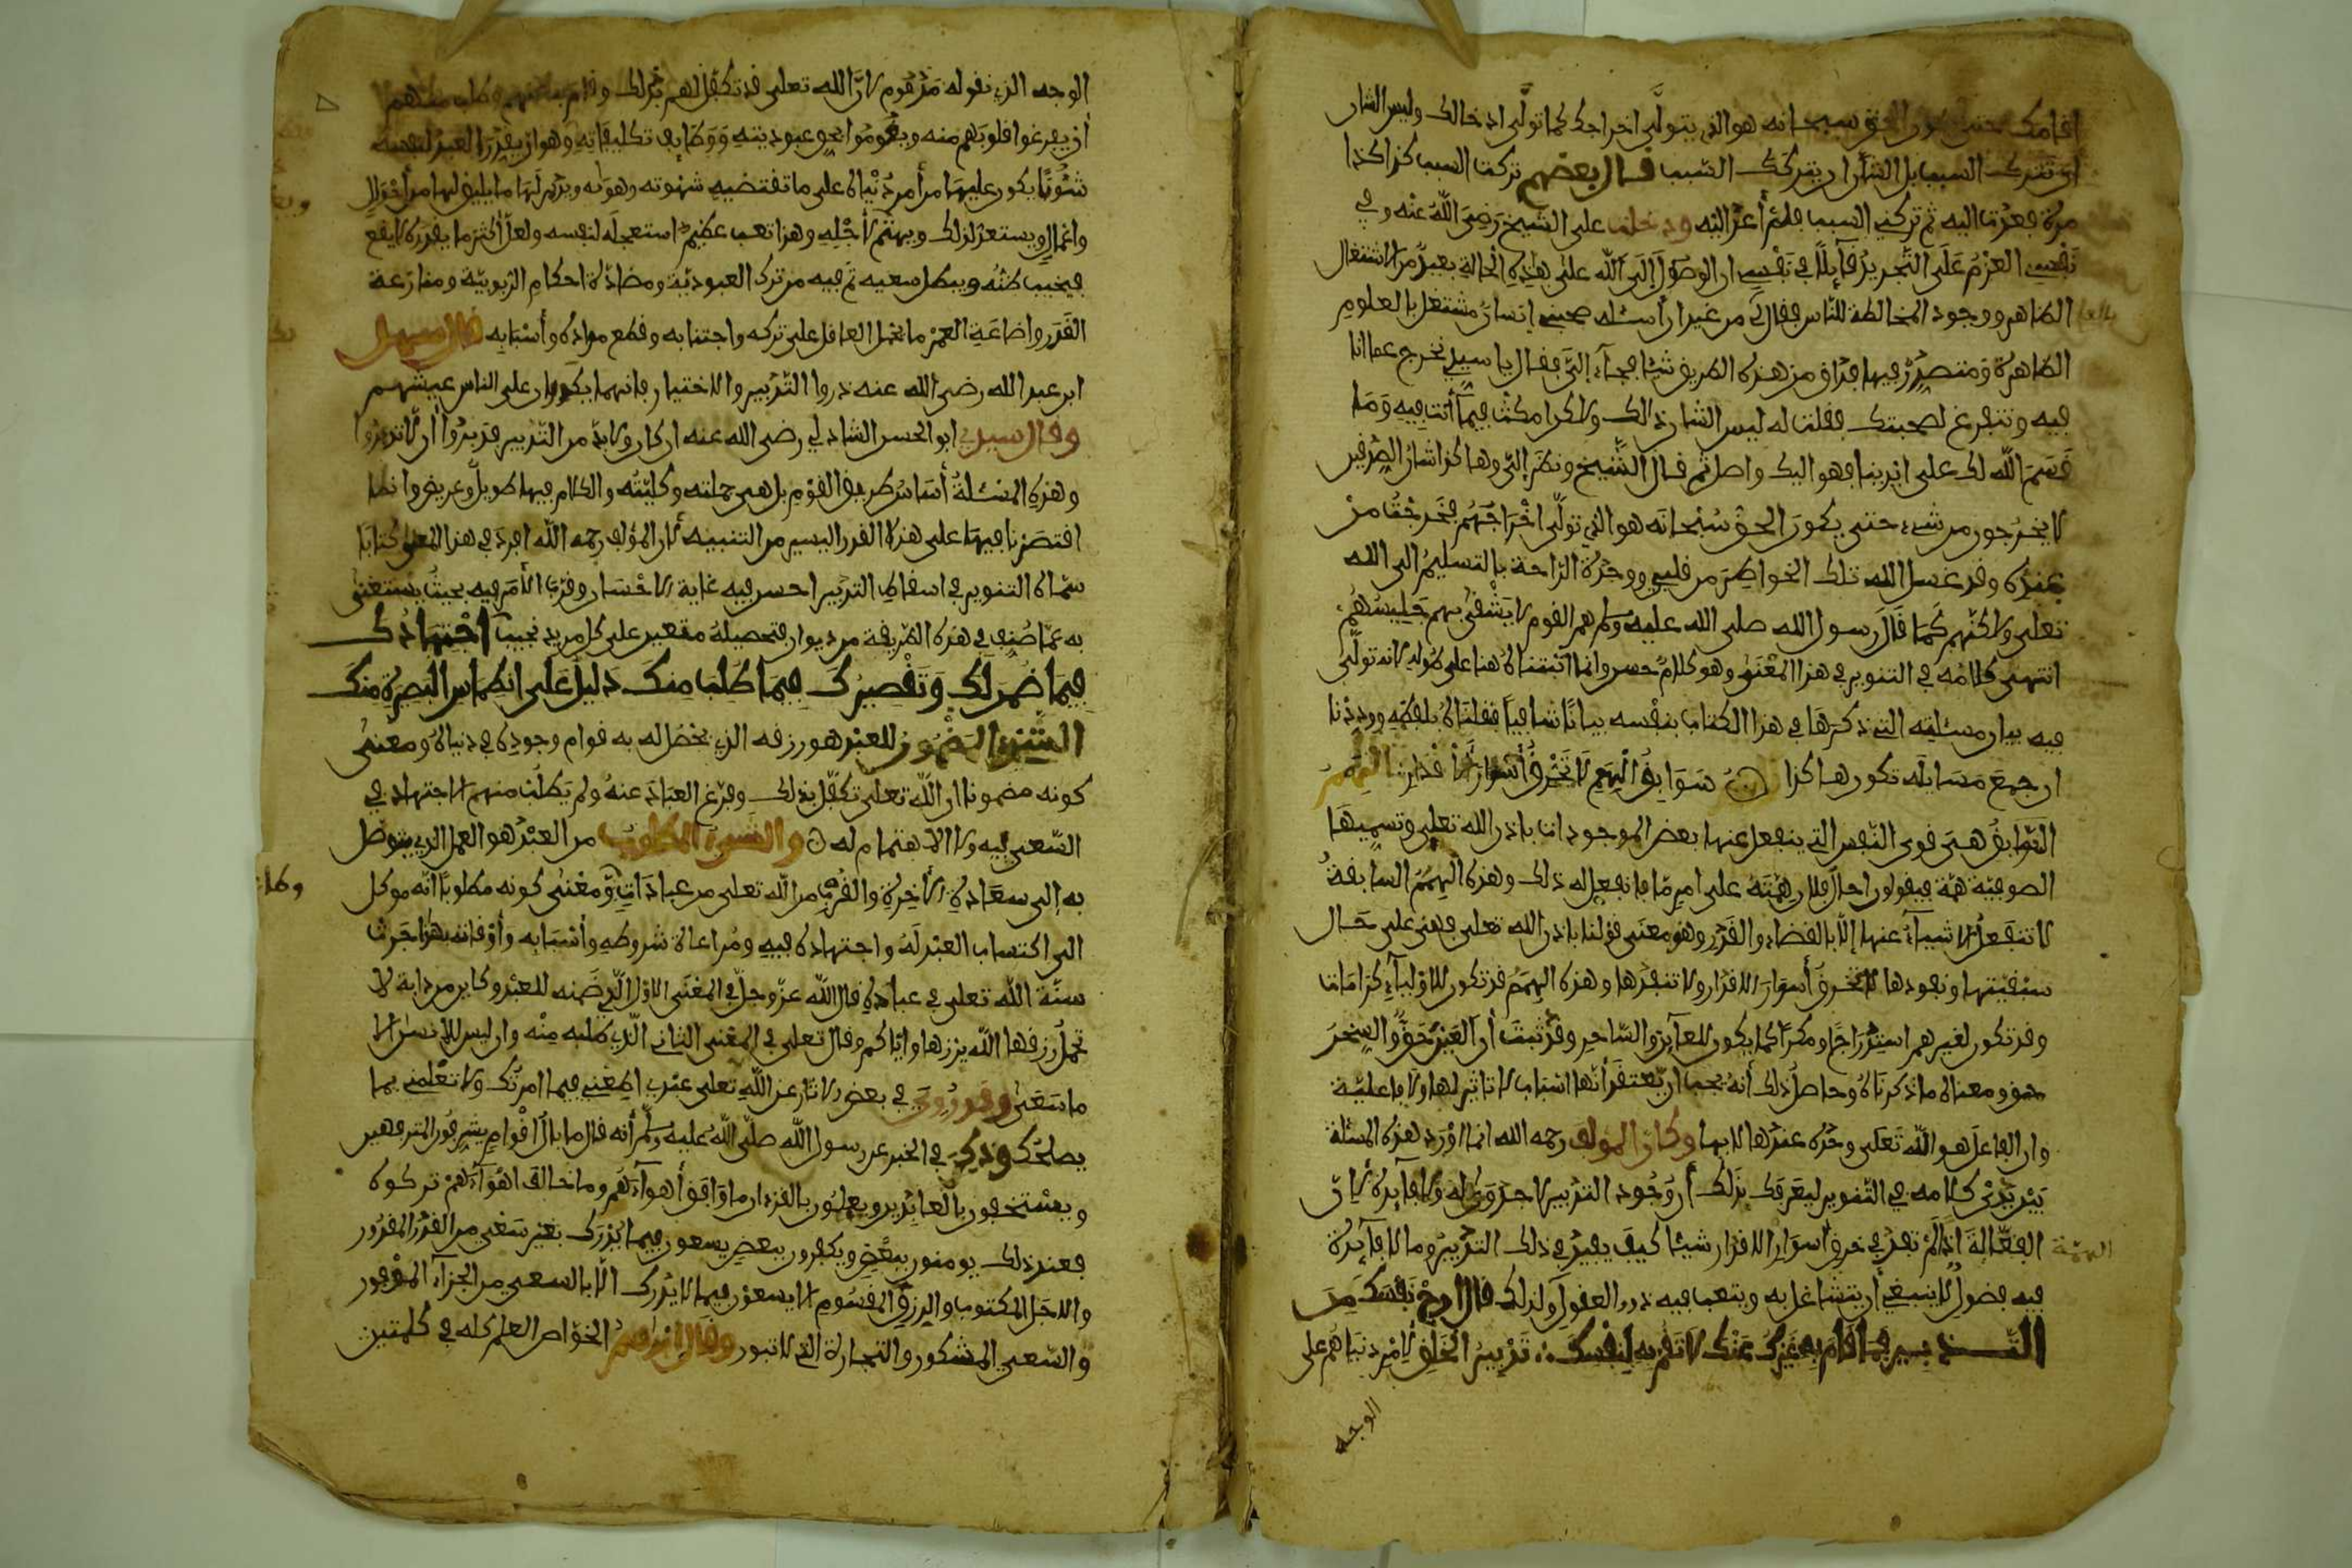 اقامك حتى يكون الحق سبحانه هو الذي يتولى اخراجك كما تولى ادخالك وليس الشان
ان تترك السبب بل الشأن ان يتركك السبب قال بعضهم تركت السبب كذا كذا
مرة فعدت اليه ثم تركني السبب فلم أعد اليه ودخلت على الشيخ رضي الله عنه وفي
نفسي العزم على التجريد قائلا في نفسي ان الوصول إلى الله على هذه الحالة بعيد من الاشتغال
بالعلم
الظاهر ووجود المخالطة للناس فقال لي من غير ان أسئله صحبني إنسان مشتغل بالعلوم
الظاهرة ومتصدر فيها فذاق من هذه الطريق شيئا فجاء إلي فقال يا سيدي نخرج عما انا
فيه ونتفرغ لصحبتك فقلت له ليس الشان ذالك ولاكن امكث فيما أنت فيه وما
قسم الله لك على ايدينا فهو اليك واصل ثم قال الشيخ ونظر إلي وهاكذا شان الصديقين
لا يخرجون من شيء حتى يكون الحق سبحانه هو الذي تولى اخراجهم فخرجت من
عنده وقد غسل الله تلك الخواطر من قلبي ووجدت الراحة بالتسليم الى الله
تعلى ولاكنهم كما قال رسول الله صلى الله عليه وسلم هم القوم لا يشقى بهم جليسهم
انتهى كلامه في التنوير في هذا المعنى وهو كلام حسن وانما اثبتناه هنا على طوله لانه تولى
فيه بيان مسئلته التي ذكرها في هذا الكتاب بنفسه بيانا شافيا فقلناه بلفظه ووددنا
ان جميع مسايله تكون هاكذا سوابق الهمم لا تخرق أسوار الأقدار الهمم
السوابق هي قوى النفس التي ينفعل عنها بعض الموجودات باذن الله تعلى وتسميها
الصوفية همة فيقولون احال فلان همته على امر ما فانفعل له ذلك وهذه الهمم السابقة
لا تنفعل الاشياء عنها إلا بالقضاء والقدر وهو معنى قولنا باذن الله تعلى فهي على حال
سبقيتها ونفوذها لا تخرق أسوار الاقدار ولا تنفذها وهذه الهمم قد تكون للاولياء كرامات
وقد تكون لغيرهم استدراجا ومكرا كما يكون للعاين والساحر وقد ثبت أن العين حق والسحر
حق ومعناه ما ذكرناه وحاصل ذلك أنه يجب ان يعتقد أنها اسباب لا تاثير لها ولا فاعلية
وان الفاعل هو الله تعلى وحده عندها لا بها وكان المؤلف رحمه الله انما اورد هذه المسئلة
بين يدي كلامه في التنوير ليعرفك بذلك أن وجود التدبير لا جدوى له ولا فايدة لأن
الهمة
الفعالة اذا لم تفد في خرق اسوار الاقدار شيئا كيف يفيد في ذلك التدبير وما لا فايدة
فيه فضول لا ينبغي أن يتشاغل به ويتعب فيه ذوو العقول ولذلك قال ارح نفسك من
التدبير فما قام به غيرك عنك لا تقم به لنفسك تدبير الخلق لأمر دنياهم على
الوجه
الوجه الذي نقوله مذموم لان الله تعلى قد تكفل لهم بذلك وقام به عنهم وطلب منهم
أن يفرغوا قلوبهم منه ويقوموا بحق عبوديته ووظايف تكليفاته وهو ان يقدر العبد لنفسه
شئونا يكون عليها من أمر دنياه على ما تقتضيه شهوته وهواه ويدبر لها ما يليق بها من أحوال
واعمال ويستعد لذلك ويهتم لأجله وهذا تعب عظيم استعجله لنفسه ولعل أكثر ما يقدره لا يقع
فيخيب ظنه ويبطل سعيه ثم فيه من ترك العبودية ومضادة احكام الربوبية ومنازعة
القدر واضاعة العمر ما يحمل العاقل على تركه واجتنابه وقطع مواده وأسبابه قال سهل
ابن عبد الله رضى الله عنه ذروا التدبير والاختيار فانهما يكدران على الناس عيشهم
وقال سيدي ابو الحسن الشاذلي رضى الله عنه ان كان ولا بد من التدبير فدبروا أن لا تدبروا
وهذه المسئلة أساس طريق القوم بل هي جملته وكليته والكلام فيها طويل وعريض وانما
اقتصرنا فيها على هذا القدر اليسير من التنبيه لأن المؤلف رحمه الله افرد في هذا المعنى كتابا
سماه التنوير في اسقاط التدبير احسن فيه غاية الاحسان وقرب الأمر فيه بحيث يستغنى
به عما صنف في هذه الطريقة من ديوان فتحصيله متعين على كل مريد نجيب اجتهادك
فيما ضمن لك وتقصيرك فيما طلب منك دليل على انطماس البصيرة منك
الشيء المضمون للعبد هو رزقه الذي يحصل له به قوام وجوده في دنياه ومعنى
كونه مضمونا ان الله تعلى تكفل بذلك وفرغ العباد عنه ولم يطلب منهم الاجتهاد في
السعي فيه ولا الاهتمام له والشيء المطلوب من العبد هو العمل الذي يتوصل
به إلى سعادة الأخرة والقرب من الله تعلى من عبادات ومعنى كونه مطلوبا أنه موكل
الى اكتساب العبد له واجتهاده فيه ومراعاة شروطه وأسبابه وأوقاته بهذا جرت
سنة الله تعلى في عباده قال الله عز وجل في المعنى الاول الذي ضمنه للعبد وكاين من دابة لا
تحمل رزقها الله يرزقها واياكم وقال تعلى في المعنى الثاني الذي طلبه منه وان ليس للإنسان الا
ما سعى وقد روي في بعض الاثار عن الله تعلى عبدي اطعني فيما امرتك ولا تعلمني بما
يصلحك وذكر في الخبر عن رسول الله صلى الله عليه وسلم أنه قال ما بال اقوام يشرفون المترفين
ويستخفون بالعابدين ويعملون بالقرءان ما وافق أهواءهم وما خالف اهواءهم تركوه
فعند ذلك يومنون ببعض ويكفرون ببعض يسعون فيما يدرك بغير سعي من القدر المقدور
والاجل المكتوب والرزق المقسوم لا يسعون فيما لا يدرك الا بالسعي من الجزاء الموفور
والسعي المشكور والتجارة التي لا تبور وقال ابراهيم الخواص العلم كله في كلمتين